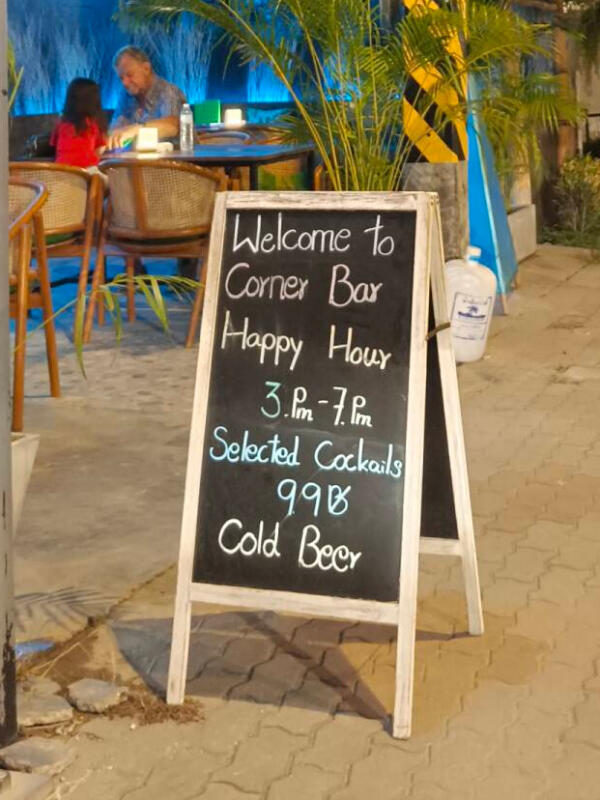 Welcome to
Corner Bar
Happy Hour
3.Pm-7.Pm
Selected Cockails
99฿
Cold Beer